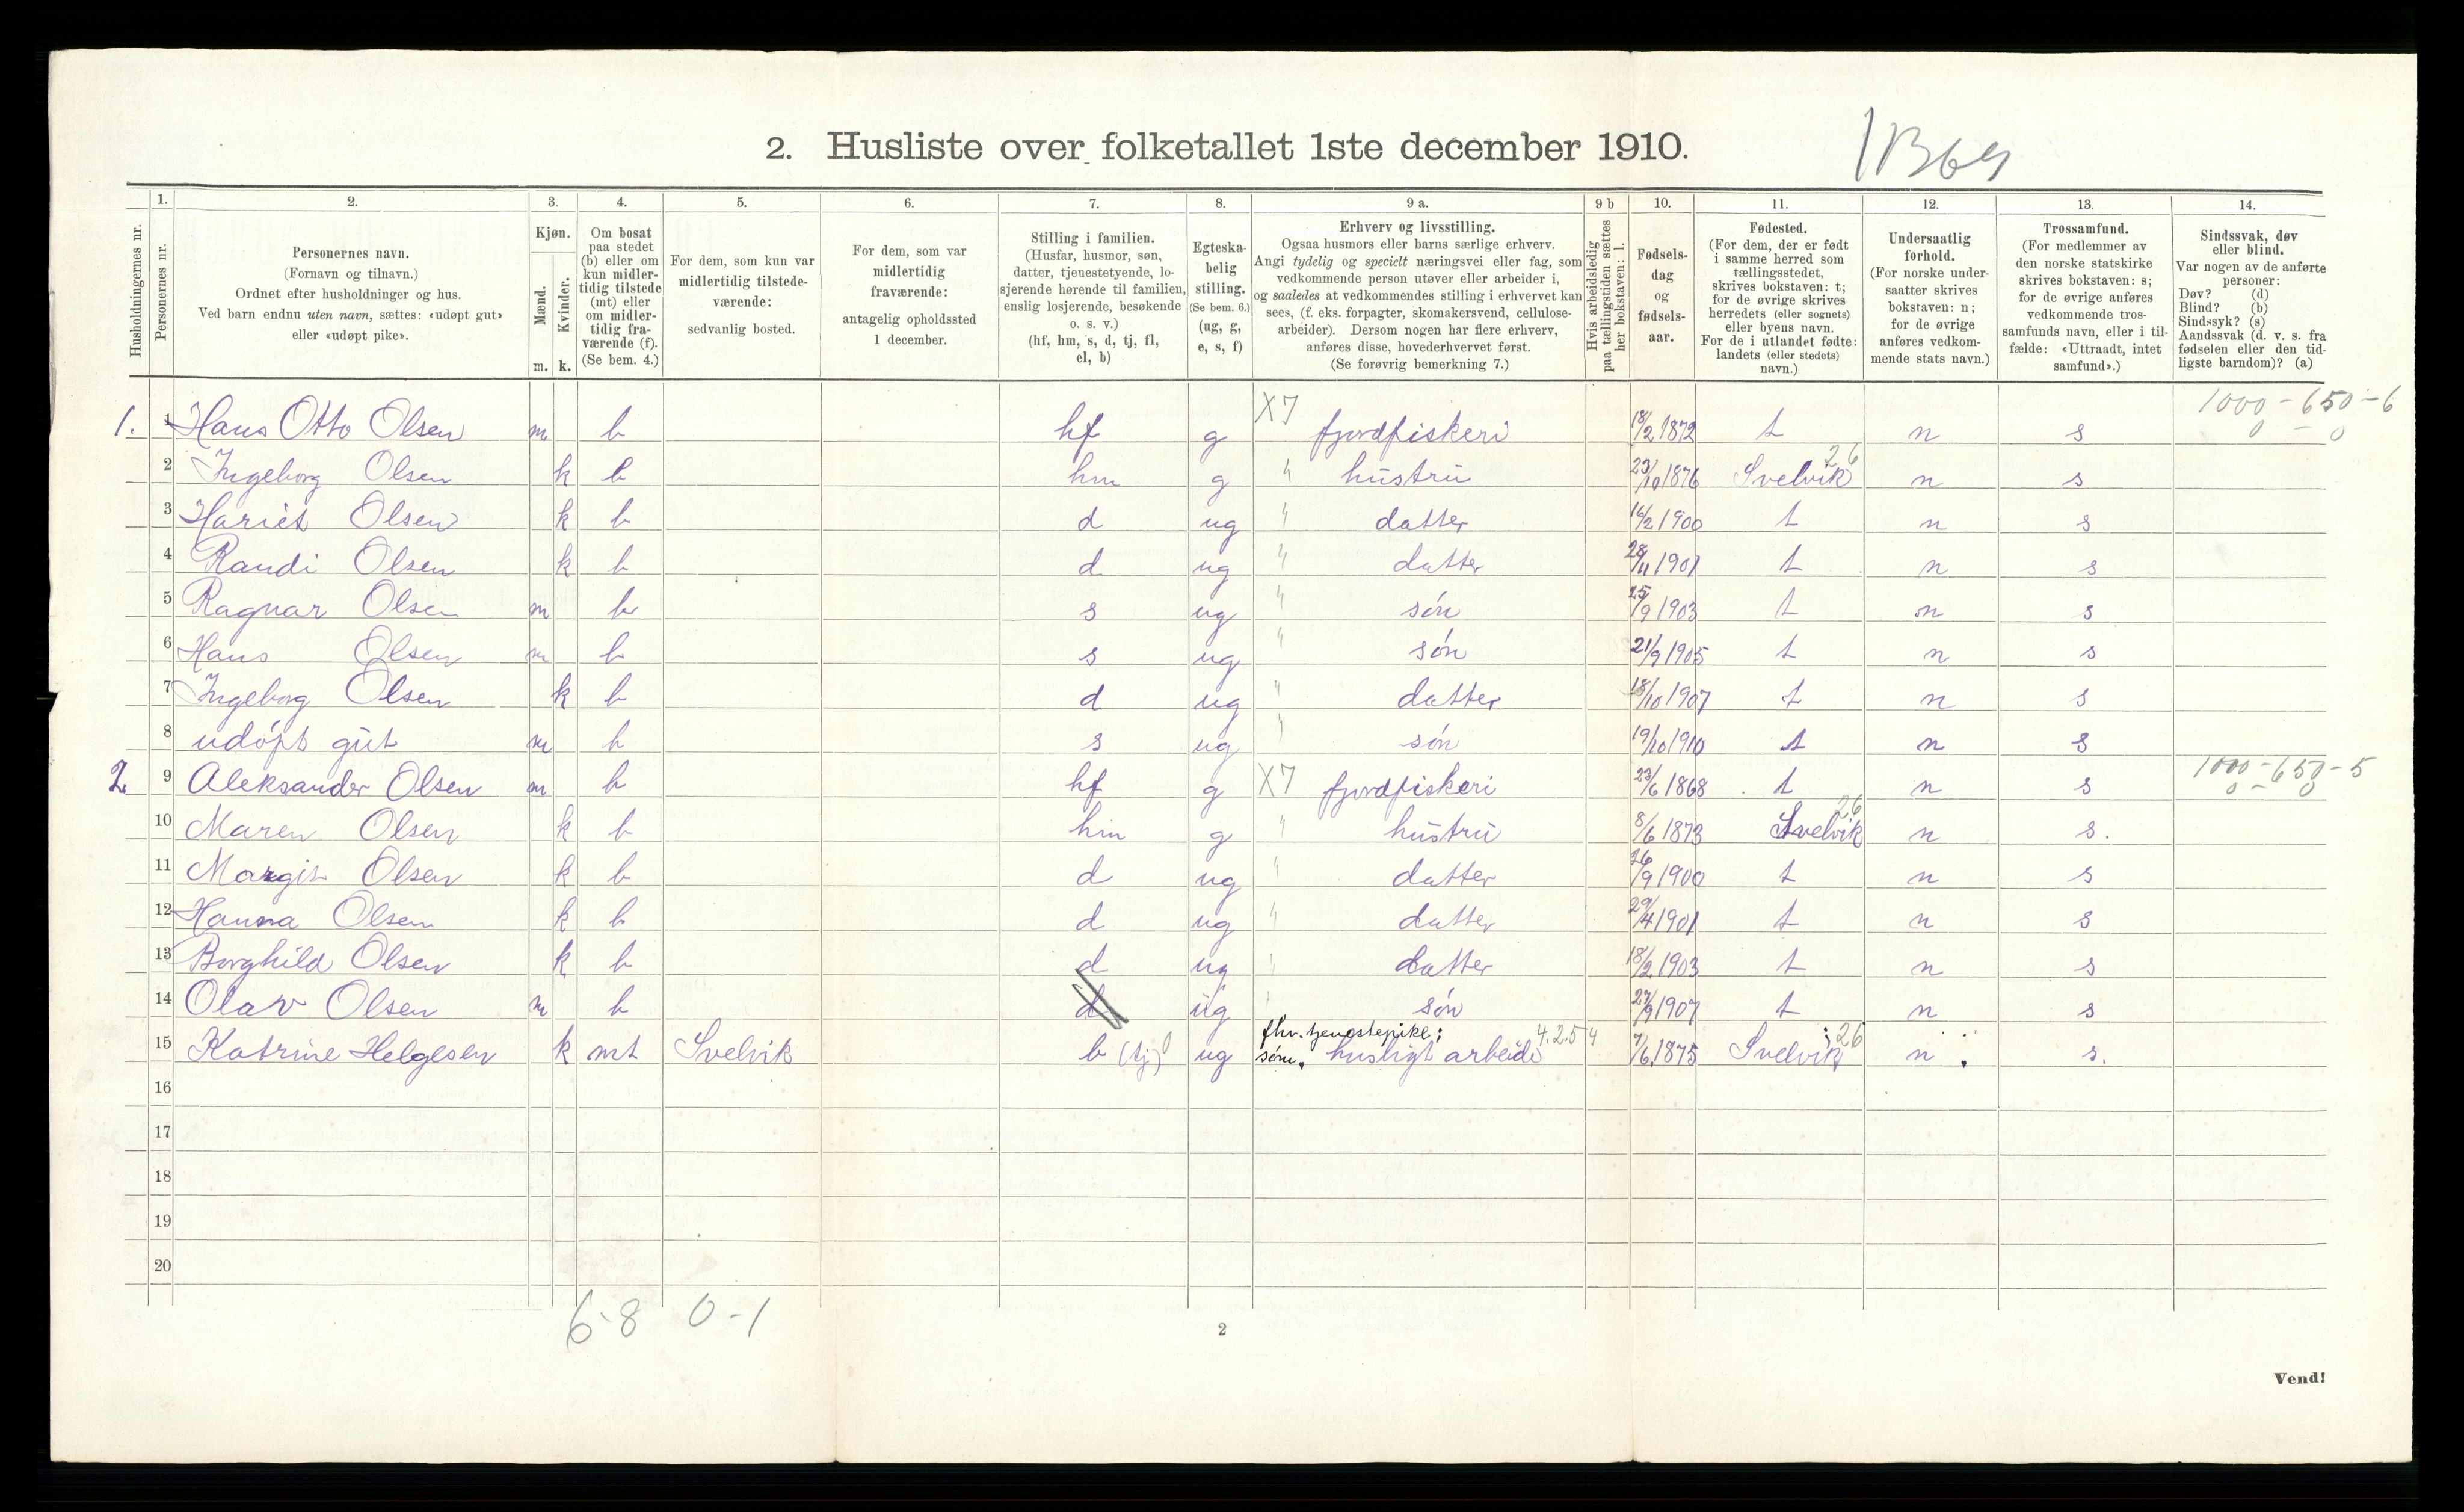 2. Husliste over folketallet 1ste december 1910.
1. 2. 3. 4. 5. 6. 7. 8. 9 a. 9 b 10. 11. 12. 13. 14.
Husholdningernes nr.
Personernes nr.
Personernes navn.
(Fornavn og tilnavn.)
Ordnet efter husholdninger og hus.
Ved barn endnu uten navn, sættes: «udøpt gut»
eller «udøpt pike».
Kjøn.
Mænd.
Kvinder.
m. k.
Om bosat
paa stedet
(b) eller om
kun midler-
tidig tilstede
(mt) eller
om midler-
tidig fra-
værende (f).
(Se bem. 4.)
For dem, som kun var
midlertidig tilstede-
værende:
sedvanlig bosted.
For dem, som var
midlertidig
fraværende:
antagelig opholdssted
1 december.
Stilling i familien.
(Husfar, husmor, søn,
datter, tjenestetyende, lo-
sjerende hørende til familien,
enslig losjerende, besøkende
o. s. v.)
(hf, hm, s, d, tj, fl,
el, b)
Egteska-
belig
stilling.
(Se bem. 6.)
(ug, g,
e, s, f)
Erhverv og livsstilling.
Ogsaa husmors eller barns særlige erhverv.
Angi tydelig og specielt næringsvei eller fag, som
vedkommende person utøver eller arbeider i,
og saaledes at vedkommendes stilling i erhvervet kan
sees, (f. eks. forpagter, skomakersvend, cellulose-
arbeider). Dersom nogen har flere erhverv,
anføres disse, hovederhvervet først.
(Se forøvrig bemerkning 7.)
Hvis arbeidsledig
paa tællingstiden sættes
her bokstaven: l.
Fødsels-
dag
og
fødsels-
aar.
Fødested.
(For dem, der er født
i samme herred som
tællingsstedet,
skrives bokstaven: t;
for de øvrige skrives
herredets (eller sognets)
eller byens navn.
For de i utlandet fødte:
landets (eller stedets)
navn.)
Undersaatlig
forhold.
(For norske under-
saatter skrives
bokstaven: n;
for de øvrige
anføres vedkom-
mende stats navn.)
Trossamfund.
(For medlemmer av
den norske statskirke
skrives bokstaven: s;
for de øvrige anføres
vedkommende tros-
samfunds navn, eller i til-
fælde: «Uttraadt, intet
samfund».)
Sindssvak, døv
eller blind.
Var nogen av de anførte
personer:
Døv? (d)
Blind? (b)
Sindssyk? (s)
Aandssvak (d. v. s. fra
fødselen eller den tid-
ligste barndom)? (a)
1000 - 650 - 6
0 - 0
1. 1 Hans Otto Olsen m b hf g X7 fjordfiskeri 18/2 1872 t n s
2 Ingeborg Olsen k b hm g " hustru 23/10 1876 Svelvik 26 n s
3 Hariet Olsen k b d ug " datter 16/2 1900 t n s
4 Randi Olsen k b d ug " datter 28/11 1901 t n s
5 Ragnar Olsen m b s ug " søn 25/9 1903 t n s
6 Hans Olsen m b s ug " søn 21/9 1905 t n s
7 Ingeborg Olsen k b d ug " datter 18/10 1907 t n s
8 udøpt gut m b s ug " søn 19/10 1910 t n s
2. 9 Aleksander Olsen m b hf g X7 fjordfiskeri 23/6 1868 t n s 1000 - 650 - 5
0 - 0
10 Maren Olsen k b hm g " hustru 8/6 1873 Svelvik 26 n s.
11 Margit Olsen k b d ug " datter 26/9 1900 t n s
12 Hanna Olsen k b d ug " datter 29/4 1901 t n s
13 Borghild Olsen k b d ug " datter 18/2 1903 t n s
14 Olav Olsen m b d ug " søn 27/9 1907 t n s
fhv. tjenestepike; 4.2.5 4
15 Katrine Helgesen k mt Svelvik b (tj) 0 ug søm. husligt arbeide 7/6 1875 Svelvik 26 n s.
16
17
18
19
20
6-8 0-1
2
Vend!